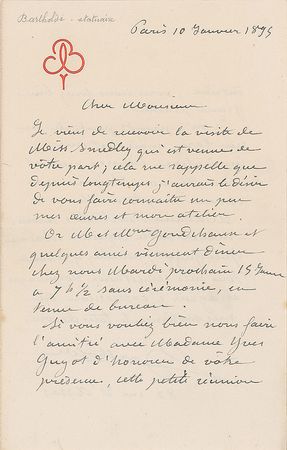 Bartholdi - statuaire
Paris 10 Janvier 1895
Cher Monsieur
Je viens de recevoir la visite de
Miss Smedley qui est venue de
votre part ; cela me rappelle que
depuis longtemps, j'aurais le désir
de vous faire connaître un peu
mes œuvres et mon atelier.
Or M et Mme Goudchaux et
quelques amis viennent dîner
chez nous Mardi prochain 15 Janv
a 7 h ½ sans cérémonie, en
tenue de bureau.
Si vous vouliez bien nous faire
l'amitié avec Madame Yves
Guyot d'honorer de vôtre
présence, cette petite réunion